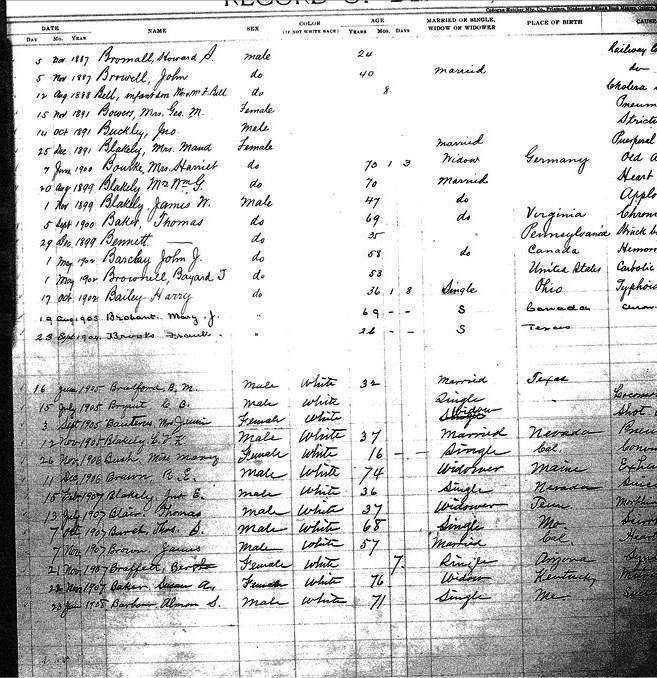 RECORD OF
DATE NAME SEX COLOR AGE MARRIED OR SINGLE, PLACE OF BIRTH CAUSE
DAY Mo. YEAR (IF NOT WHITE RACE) YEARS Mos. DAYS WIDOW OR WIDOWER
5 Nov 1887 Bromall, Howard S. male 24 Railway
5 Nov 1887 Browell, John do 40 married do
12 Aug 1888 Bell, infant son Mr & Mrs F. Bell do 8 Cholera
15 Nov 1891 Bowers, Mrs. Geo. M. Female Pneum
14 Oct 1891 Buckley, Jno. Male Strict
25 Dec 1891 Blakely, Mrs. Maud Female married Puerperal
7 June 1900 Bourke, Mrs. Harriet do 73 1 3 Widow Germany Old A
20 Aug 1899 Blakely Mrs Wm G. do 70 Married Heart
1 Nov 1899 Blakely, James W. Male 47 do Apple
5 Sept 1900 Baker, Thomas do 69 do Virginia Chron
29 Dec 1899 Bennett — do 35 Pennsylvania Struck b
1 May 1902 Barclay John J. do 58 do Canada Hemorr
1 May 1902 Brownell, Bayard T do 53 United States Carbolic
17 Oct 1902 Bailey Harry do 36 1 8 Single Ohio Typhoid
19 Aug 1903 Mary J. " 69 - - S Canada
23 Sept Brooks " 26 - - S Texas
16 June 1905 Bradford B. M. Male White 32 Married Texas
15 July 1905 Bryant C. B. Male White Single
3 Sept 1905 Mrs Jennie Female White Widow Shot
12 Nov 1905 Blakely Male White 37 Married Nevada
26 Nov 1906 Bush, Miss Mary Female White 16 - - Single Cal.
11 Dec 1906 Brown, R. E. Male White 74 Widower Maine
15 Feb 1907 Blakely, Jno E. male White 36 Single Nevada
13 July 1907 Blair, Thomas male White 37 Widower Tenn
7 Oct 1907 Burch, Thos. S. Male White 68 Single Mo.
7 Nov 1907 Brown, James Male White 57 Married Cal Heart
21 Nov 1907 Female White 7 Single Arizona
22 Nov 1907 Baker, Susan A. Female White 76 Widow Kentucky
23 Jan 1908 Barbour Almon S. Male White 71 Single Me